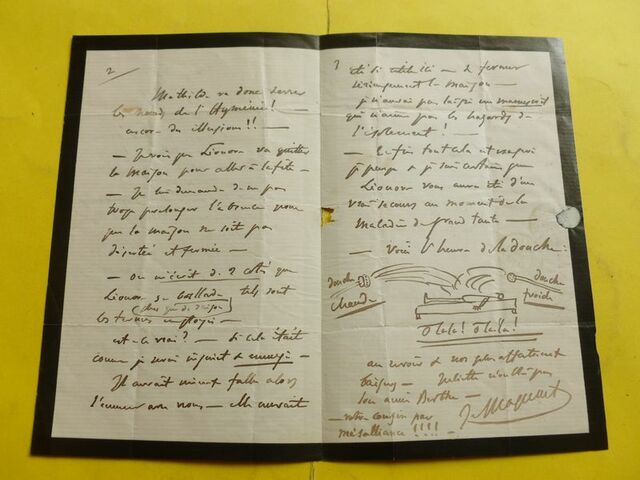 2/
Mathilde va donc serrer
les nœuds de l'Hyménée! —
encore des illusions!! —
— Je vois que Léonore va quitter
la maison pour aller à la fête —
— Je lui demande de ne pas
trop prolonger l'absence pour
que la maison ne soit pas
et fermée —
— On m'écrit de 2 côtés que
Léonore se tels sont
plus que de raison
les termes employés —
est-ce vrai? — si cela était
comme je serais inquiet & ennuyé —
Il aurait mieux fallu alors
l'emmener avec vous — elle aurait
3
été si utile ici — & fermer
la maison —
je n'aurais pas laissé un manuscrit
qui n'aime pas les hazards de
l'isolement! —
— Enfin tout cela est exagéré
je pense & je suis certain que
Léonore vous aura été d'un
vrai secours au moment de la
maladie de grand tante —
— Voici l'heure de la douche:
douche
chaude
douche
froide
O lala! O lala!
au revoir & nos plus affectueux
baisers — Juliette n'oublie pas
son amie Berthe —
— votre cousin par
mésalliance!!!! —
J. Massenet